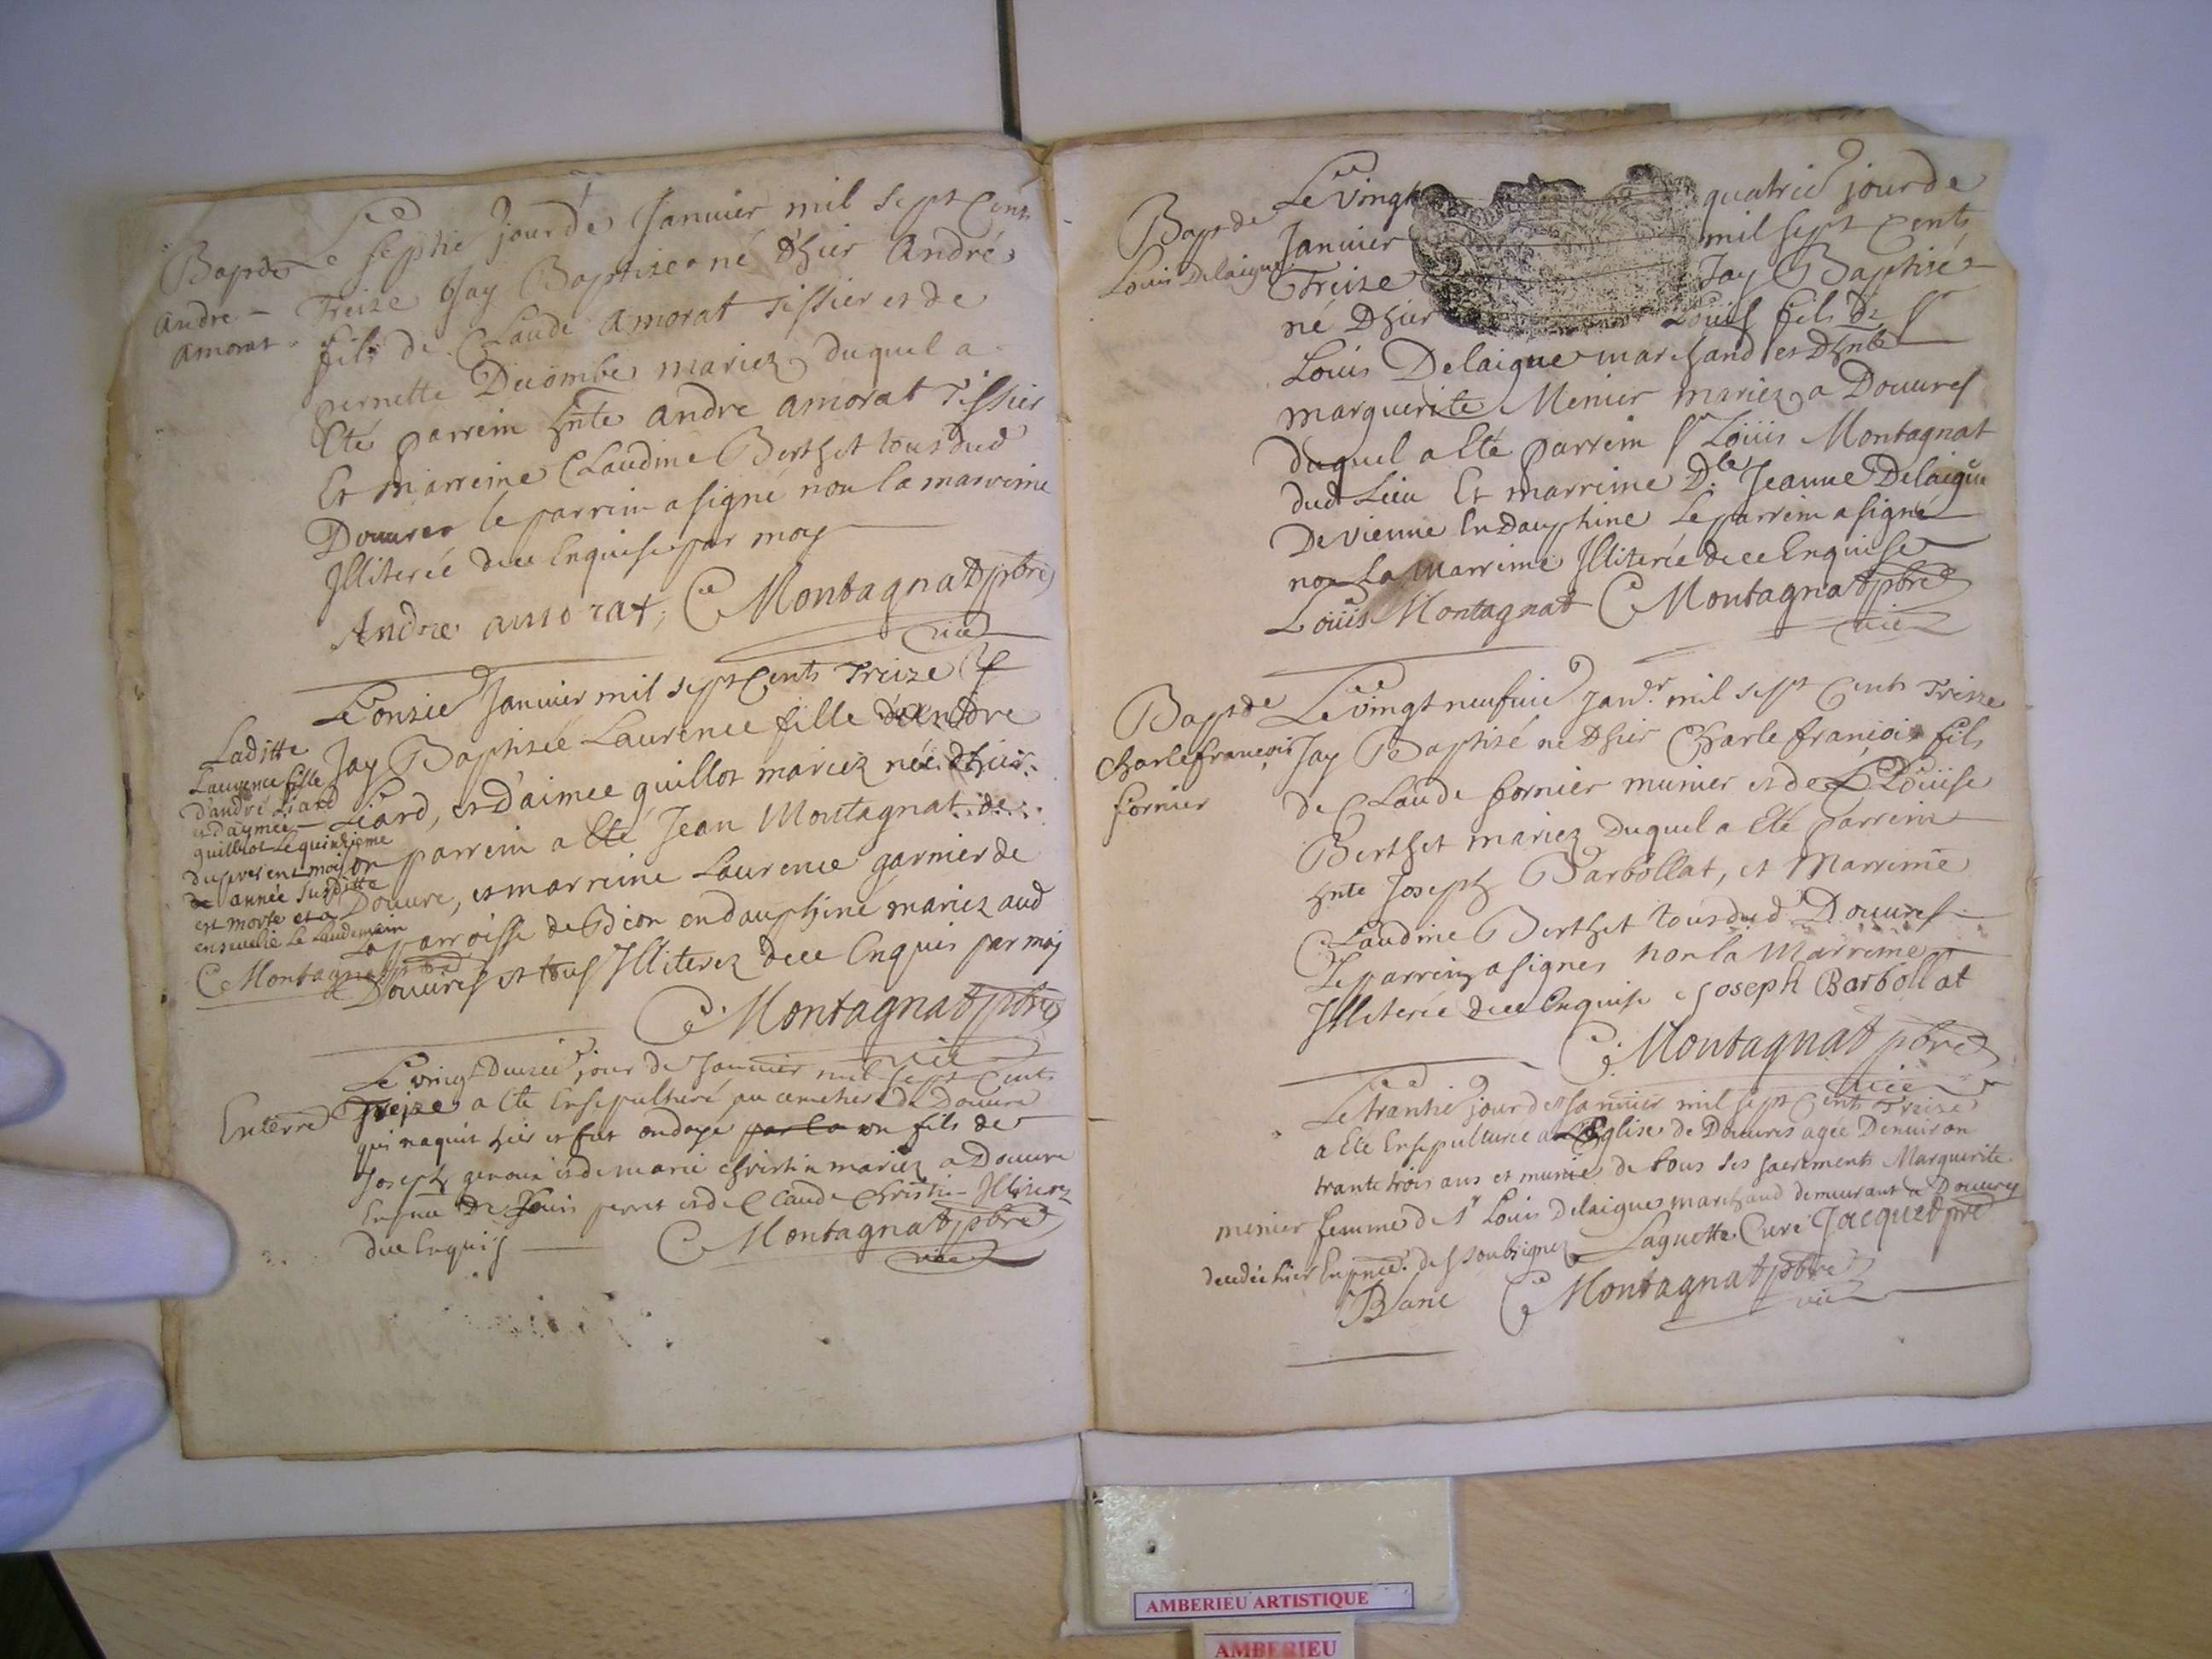 Bap de
andre
amorat
Le septie jour de Januier mil sept Cents
Treize Jay Baptizé né Dhier André
fils de Claude amorat Tissier et de
pernette Decombe mariez duquel a
Eté parrein hnte andre amorat Tissier
Et marreine Claudine Berthet tous dud
Douures le parrein a signé non la marreine
Jlliterée de ce Enquise par moy
Andre amorat, C Montagnat pbre
vice
Laditte
Laurence fille
d'andré Liard
et d'aymee
guilliot le quinzieme
du present mois
de année susditte
est morte et a
ensevelie le landemain
C Montagnat pbre
Le onzie Januier mil sept Cents Treize
Jay Baptisée Laurence fille d'andre
Liard, et D'aimee guillot mariez née dhier
son parrein a Eté Jean Montagnat de
Douure, et marreine Laurence garnier de
La parroisse de Bion en dauphiné mariez aud
Douures et tous Jlliterez de ce Enquis par moy
C Montagnat pbre
vice
Enterre
Le vingt Deuzie jour de Januier mil sept Cents
Treize a Ete Ensepulturé au cemetiere de Douure
qui naquit hier et fut ondoyé par la un fils de
Joseph genoux et de marie christin mariez a Douure
En pnce De Louis perret et de Claude Christin Jlliterez
de ce Enquis
C Montagnat pbre
vice
Bap de
Louis Delaigue
Le vingt quatrie jour de
Januier mil sept Cents
Treize Jay Baptisé
né Dhier Louis fils De Sr
Louis Delaigue marchand et Dhnte
marguerite Menier mariez a Douures
duquel a Eté parrein Sr Louis Montagnat
dudt Lieu Et marreine Dle Jeanne Delaigue
De vienne En Dauphine Le parrein a signé
non La Marreine Jlliterée de ce Enquise
Louis Montagnat C Montagnat pbre
vice
Bap de
Charle françois
fornier
Le vingt neufuie Janer mil sept Cents Treize
Jay Baptizé ne Dhier Charle françois fils
de Claude fornier munier et de Louise
Berthet mariez Duquel a Eté parrein
hnte Joseph Barbollat, et Marreine
Claudine Berthet tous dud Douures
Le parrein a signer non la Marreine
Jlliterée de ce Enquise Joseph Barbollat
C Montagnat pbre
vice
Le trantie jour de Januier mil sept Cents Treize
a Eté Ensepulturée a L'Eglise de Douures agée Denuiron
trante trois ans et munie de tous ses sacrements Marguerite
menier femme de Sr Louis Delaigue marchand demeurant a Douures
decedée hier En pnce des soubsignez Laguette Curé Jacquet pre
Blanc C Montagnat pbre
vice
AMBERIEU ARTISTIQUE
AMBERIEU